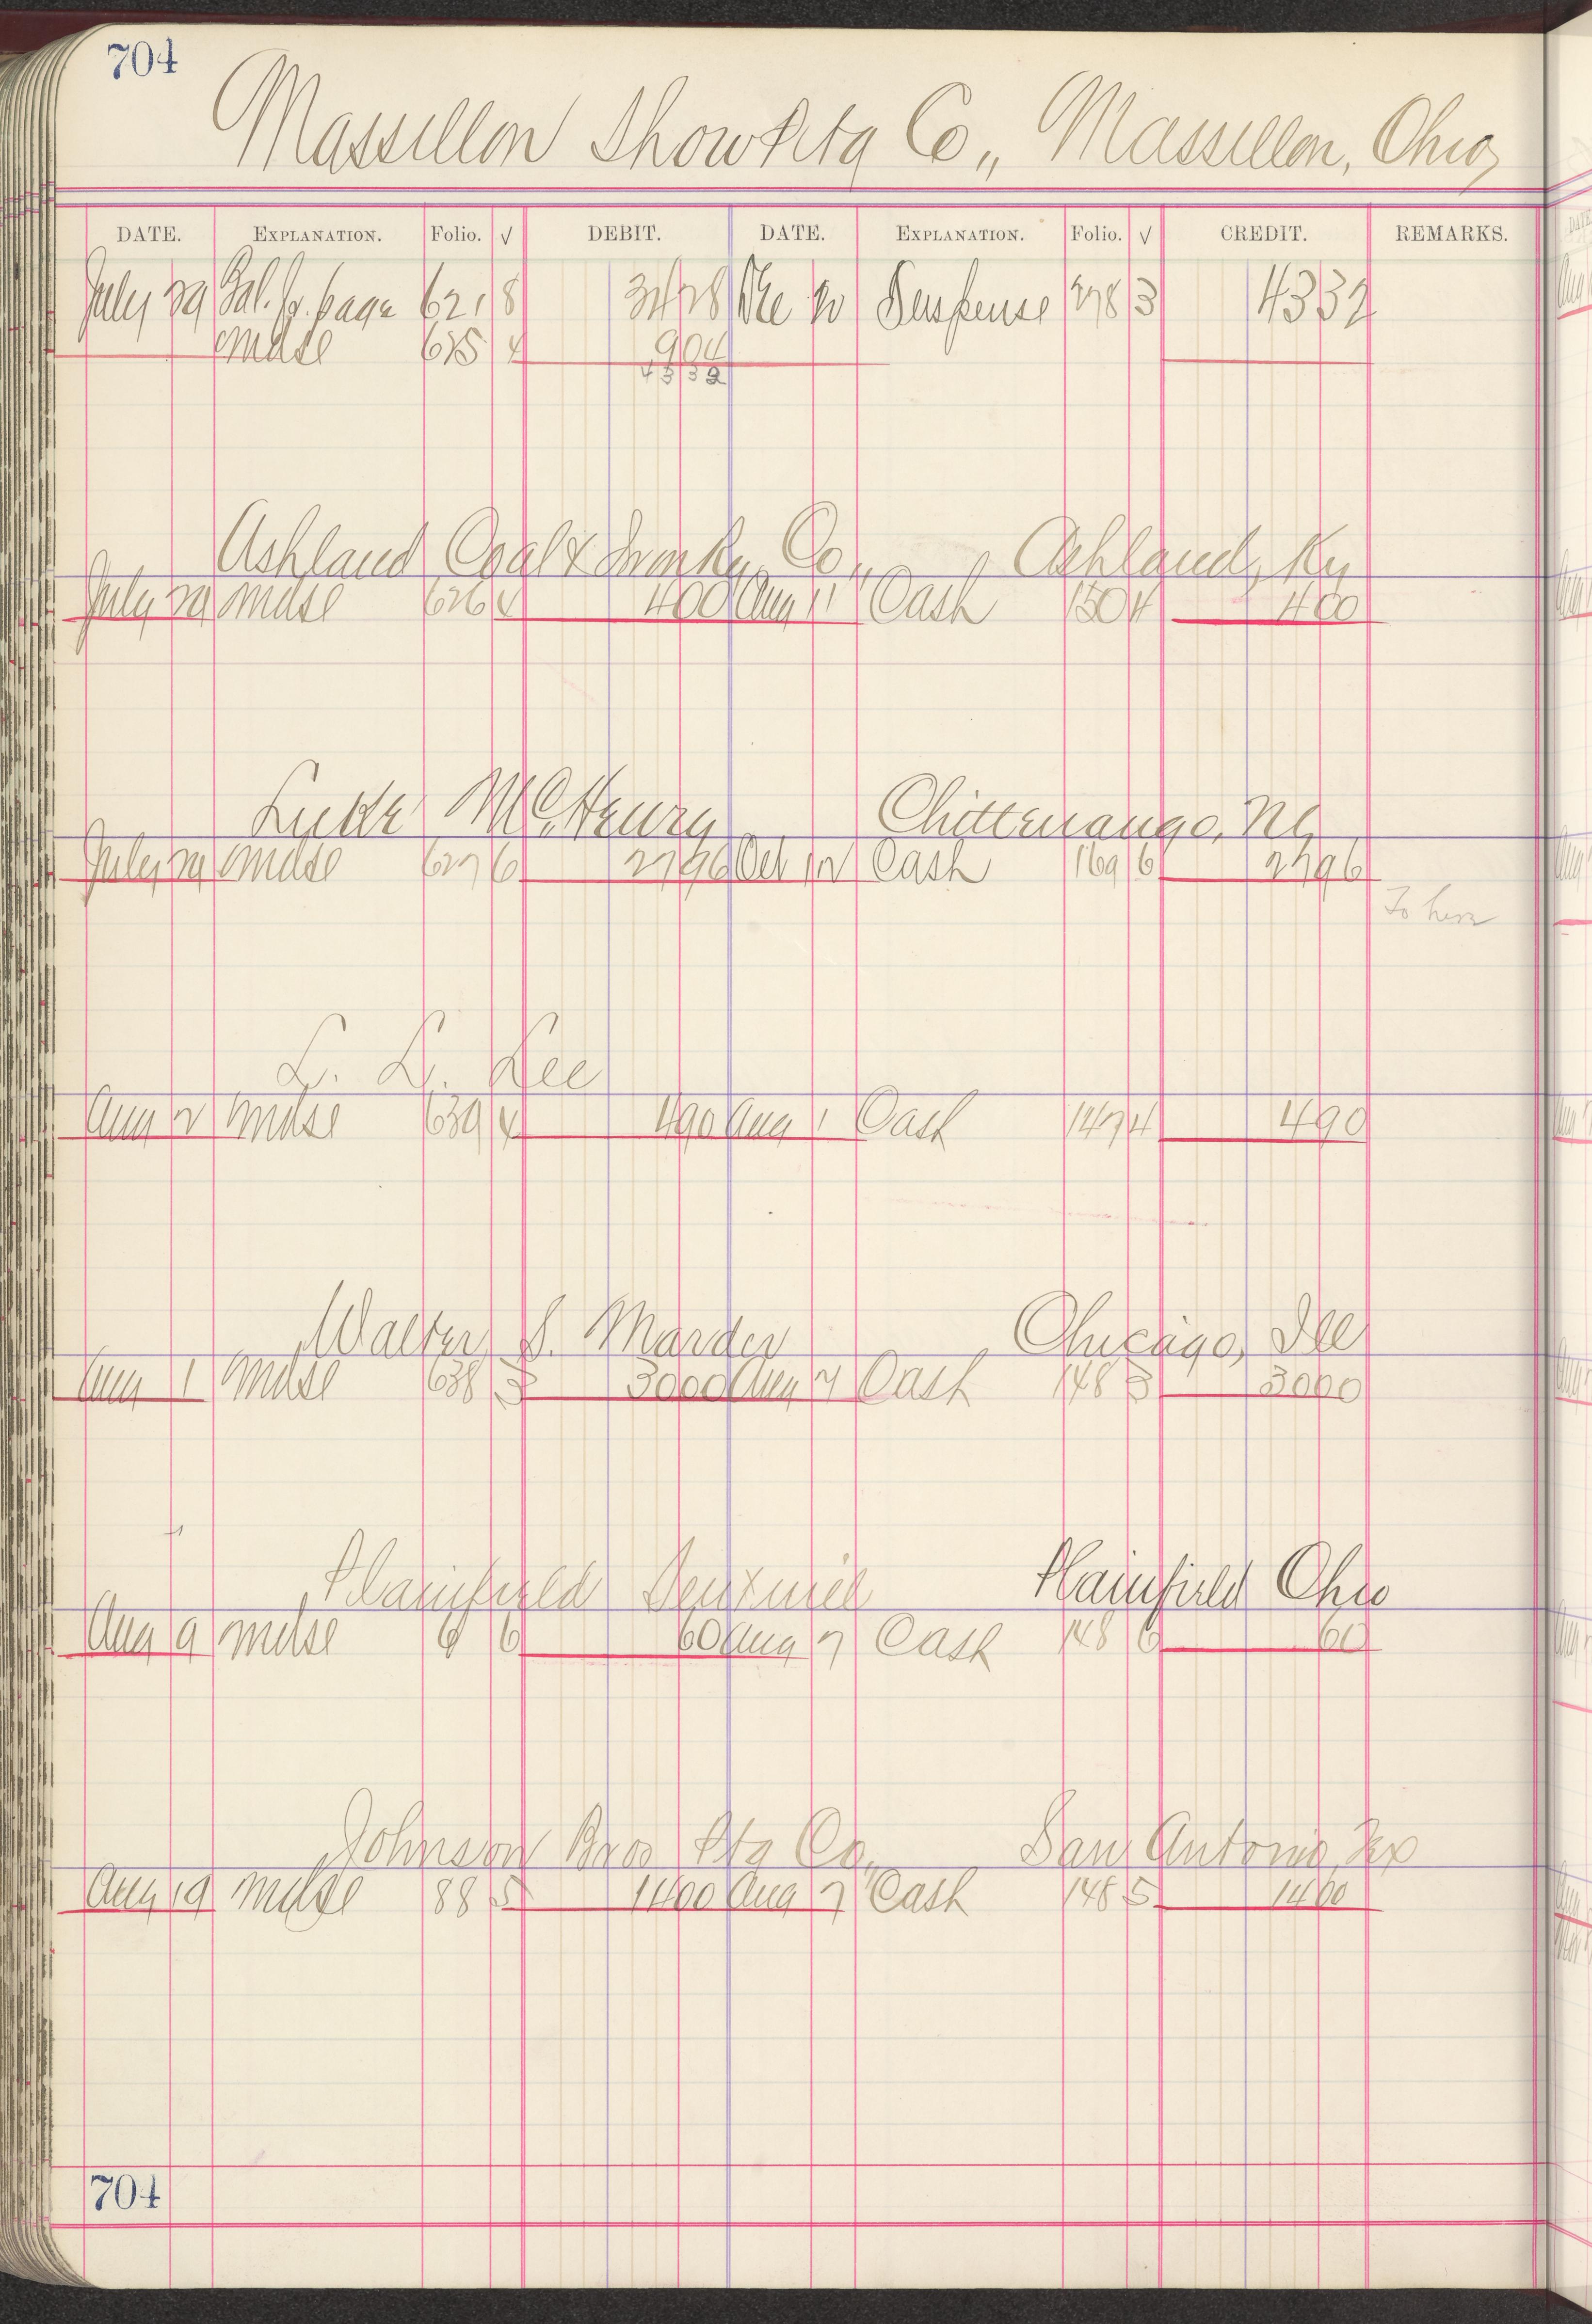 704
Massillon Show Ptg Co., Massillon, Ohio,
DATE. EXPLANATION. Folio. √ DEBIT. DATE. EXPLANATION. Folio. √ CREDIT. REMARKS.
July 29 Bal. fr. page 621 8 34 28 Dec 20 Suspense 278 3 43 32
Mdse 625 4 9 04
43 32
Ashland Coal & Iron Ry. Co., Ashland, Ky
July 29 Mdse 626 4 4 00 Aug 11 Cash 150 4 4 00
Luke McHenry Chittenango, NY
July 29 Mdse 627 6 27 96 Oct 12 Cash 169 6 27 96
To here
L. L. Lee
Aug 2 Mdse 639 4 4 90 Aug 1 Cash 147 4 4 90
Walter S. Marder Chicago, Ill
Aug 1 Mdse 638 3 30 00 Aug 7 Cash 148 3 30 00
Plainfield Sentinel Plainfield Ohio
Aug 9 Mdse 6 6 60 Aug 7 Cash 148 6 60
Johnson Bros Ptg Co., San Antonio, Tex
Aug 19 Mdse 88 5 14 00 Aug 7 Cash 148 5 14 00
704